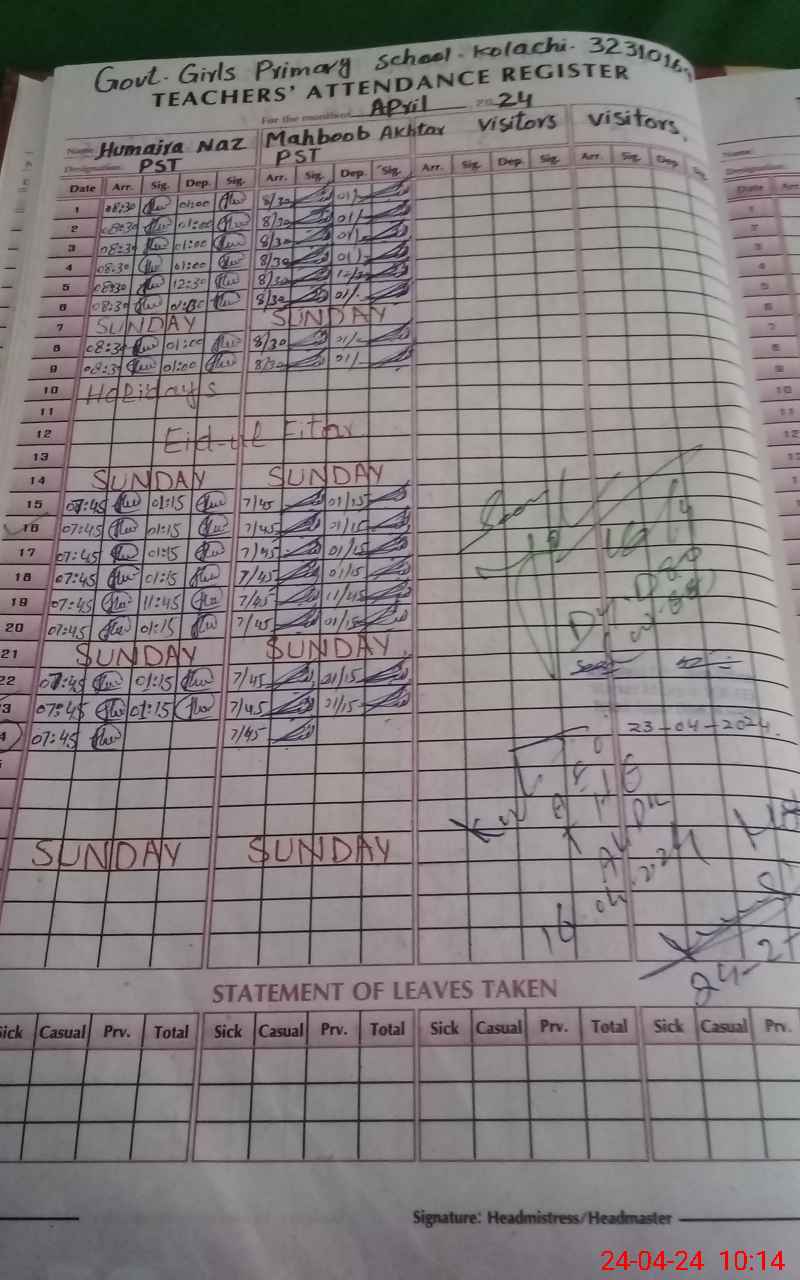 Govt. Girls Primary School. Kolachi. 3231016
TEACHERS' ATTENDANCE REGISTER
For the month of April 2024
Name: Humaira Naz Mahboob Akhtar visitors visitors.
Designation: PST PST
Date Arr. Sig. Dep. Sig. Arr. Sig. Dep. Sig. Arr. Sig. Dep. Sig. Arr. Sig. Dep. Sig.
1 08:30 01:00 8/30 01/-
2 08:30 01:00 8/30 01/-
3 08:30 01:00 8/30 01/-
4 08:30 01:00 8/30 01/-
5 08:30 12:30 8/30 12/30
6 08:30 8/30 01/-
7 SUNDAY SUNDAY
8 08:30 01:00 8/30 01/-
9 08:30 01:00 8/30 01/-
10 Holidays
11
12 Eid-ul Fitar
13
14 SUNDAY SUNDAY
15 07:45 01:15 7/45 01/15
16 07:45 01:15 7/45 01/15
17 07:45 01:15 7/45 01/15
18 07:45 01:15 7/45 01/15
19 07:45 11:45 7/45 11/45
20 07:45 01:15 7/45 01/15
21 SUNDAY SUNDAY
22 07:45 01:15 7/45 01/15
3 07:45 01:15 7/45 01/15
23-04-2024.
4 07:45 7/45
SUNDAY SUNDAY
STATEMENT OF LEAVES TAKEN
Sick Casual Prv. Total Sick Casual Prv. Total Sick Casual Prv. Total Sick Casual Prv.
Signature: Headmistress/Headmaster
24-04-24 10:14